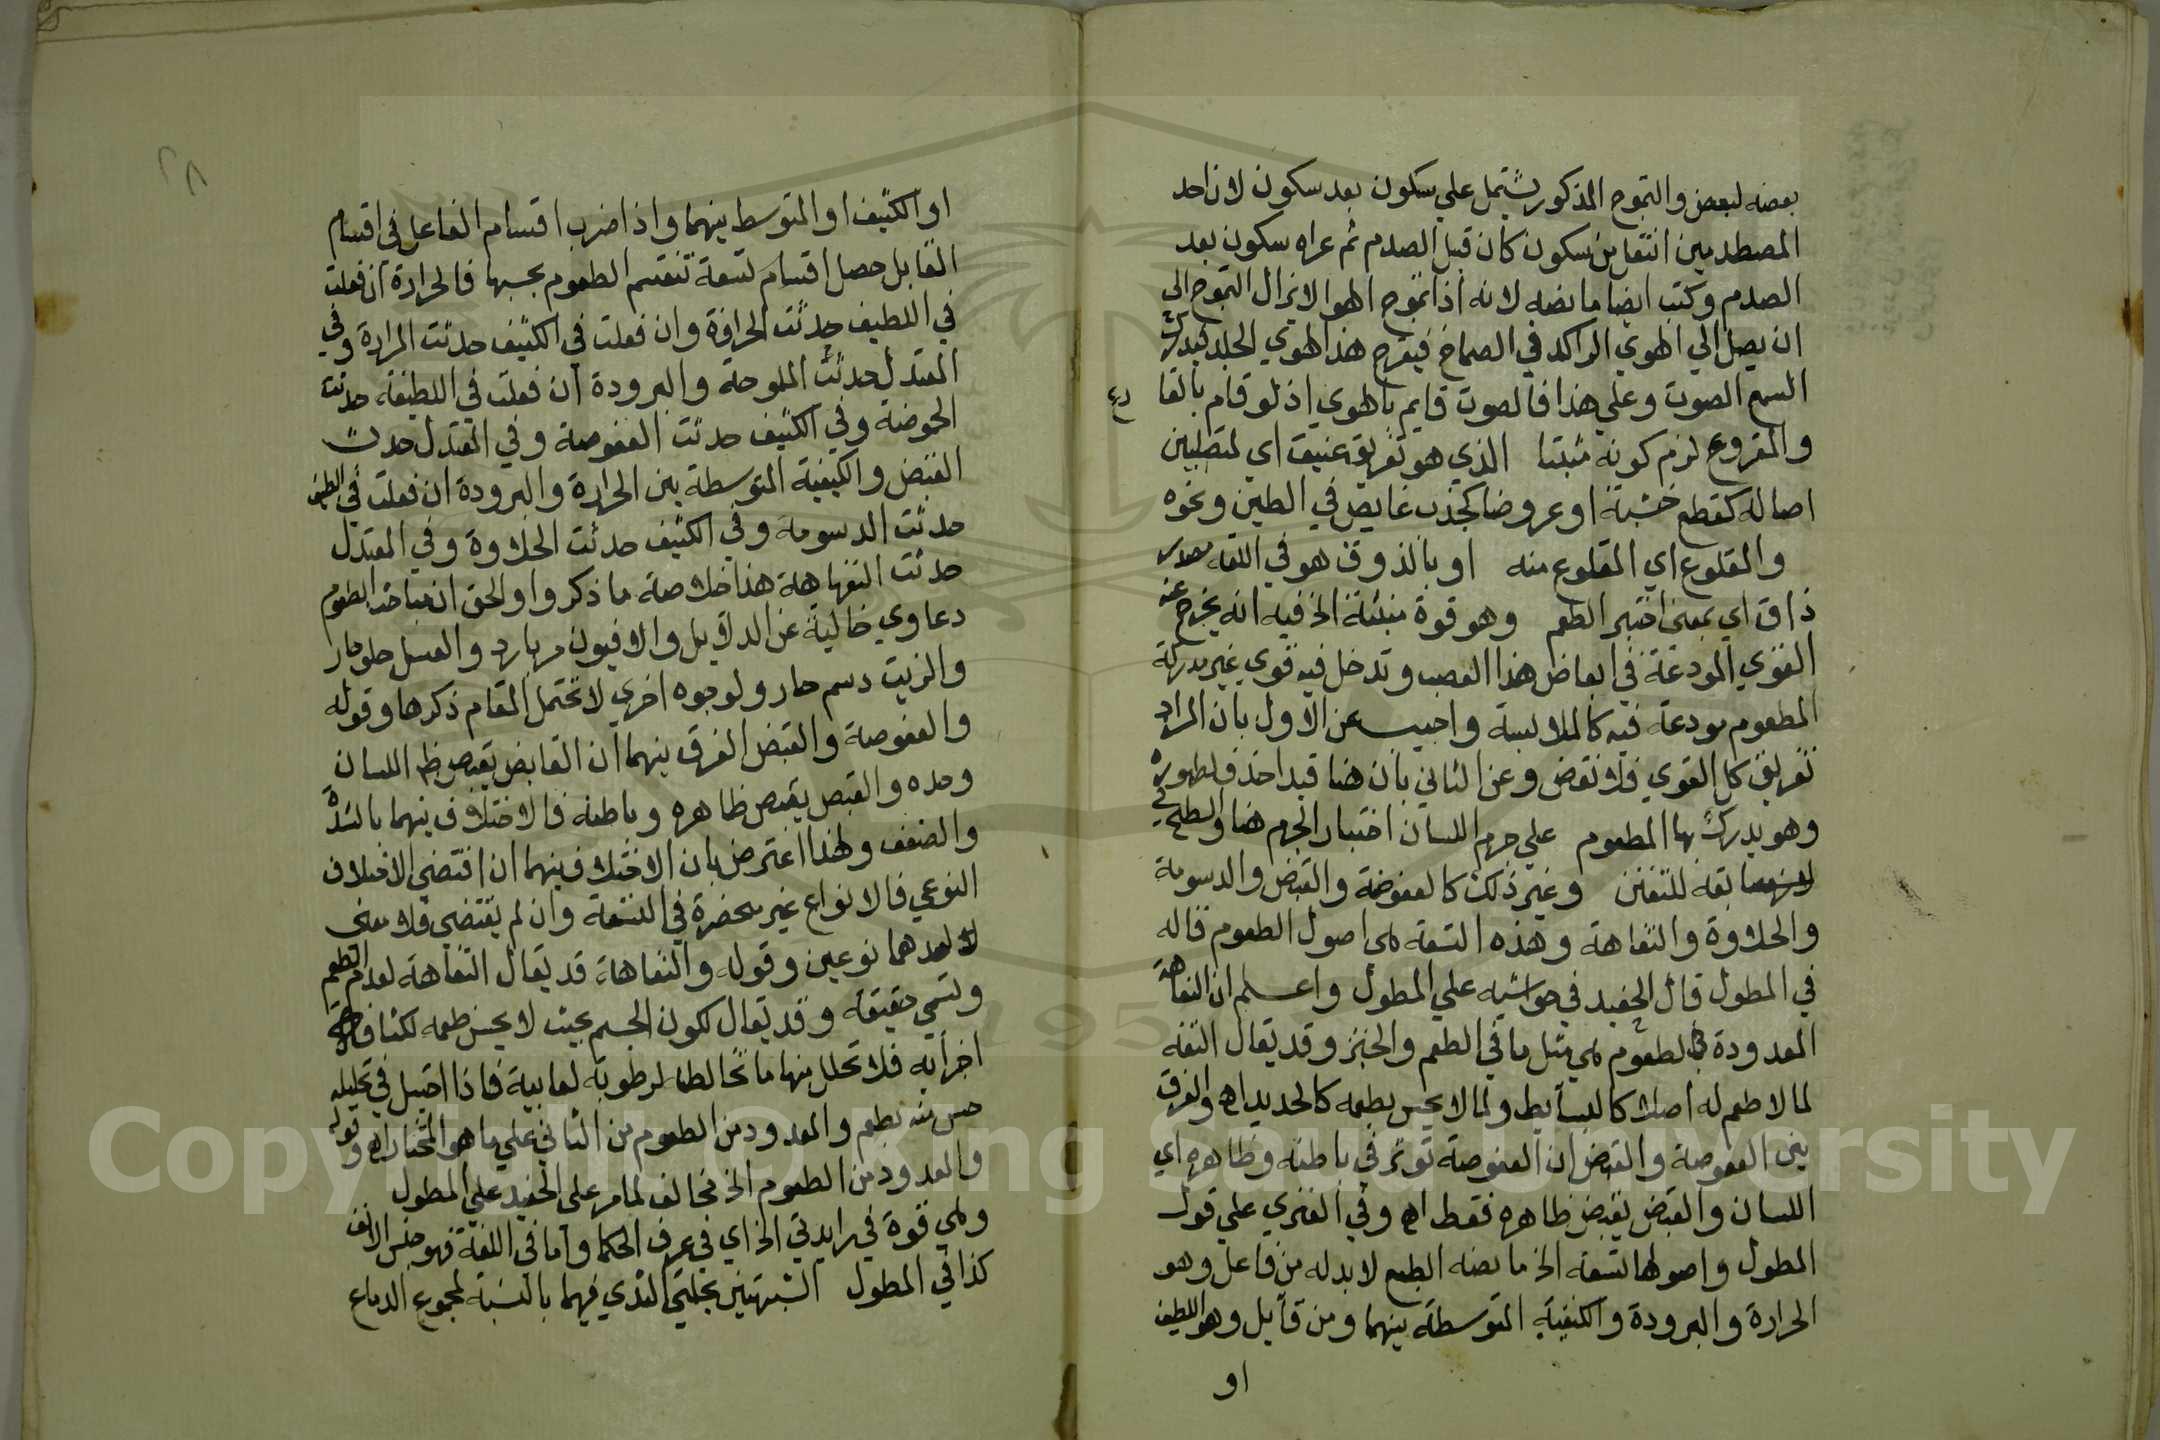 بعضه لبعض والتموج المذكور يشتمل علي سكون بعد سكون لان احد
المصطدمين انتقل من سكون كان قبل الصدم ثم عراه سكون بعد
الصدم وكتب ايضا ما نصه لانه اذا تموج الهوا لا يزال التموج الي
ان يصل الي الهوي الراكد في الصماخ فيقرع هذا الهوي الجلد فيدرك
السمع الصوت وعلي هذا فالصوت قايم بالهوي اذ لو قام بالقا رع
والمقروع لزم كونه مثبتا الذي هو تفريق عنيف اي لمتصلبين
اصاله كقطع خشبة او عروضا كجذب غايص في الطين ونحوه
والمقلوع اي المقلوع منه او بالذوق هو في اللغه مصدر
ذاق اي بمعني اختبر الطعم وهو قوة منبثة الخ فيه انه يخرج عنه
القوي المودعة في ابعاض هذا العصب وتدخل فيه قوي غير مدركة
المطعوم مودعة فيه كالملامسة واجيب عن الاول بان المراد
تعريف كل القوي فلا نقض وعن الثاني بان هنا قيدا حذف لظهوره
وهو يدرك بها المطعوم علي جرم اللسان اختبار الجرم هنا والسطح في
سابقه للتفنن وغير ذلك كالعفوصة والقبض والدسومة
والحلاوة والتفاهة وهذه التسعه هي اصول الطعوم قاله
في المطول قال الحفيد في حواشيه علي المطول واعلم ان التفاهة
المعدودة في الطعوم هي مثل ما في الطعم والخبز وقد يقال التفه
لما لا طعم له اصلا كالبسايط ولما لا يحس بطعمه كالحديد اه والفرق
بين العفوصة والقبض ان العفوصة توثر في باطنه وظاهره اي
اللسان والقبض يقبض ظاهره فقط اه وفي الفنري علي قول
المطول واصولها تسعه الخ ما نصه الطعم لا بد له من فاعل وهو
الحرارة والبرودة والكيفية المتوسطة بينهما ومن قابل وهو اللطيف
او
٢٨
او الكثيف او المتوسط بينهما واذا ضرب اقسام الفاعل في اقسام
القابل حصل اقسام تسعة تنقسم الطعوم بحسبها فالحرارة ان فعلت
في اللطيف حدثت الحرافة وان فعلت في الكثيف حدثت المرارة وفي
المعتدل حدثت الملوحة والبرودة ان فعلت في اللطيفة حدثت
الحموضة وفي الكثيف حدثت العفوصة وفي المعتدل حدث
القبض والكيفية المتوسطة بين الحرارة والبرودة ان فعلت في اللطيف
حدثت الدسومة وفي الكثيف حدثت الحلاوة وفي المعتدل
حدثت التفاهة هذا خلاصة ما ذكروا والحق ان مباحث الطعوم
دعاوي خالية عن الدلايل والافيون مر بارد والعسل حلو حار
والزيت دسم حار ولوجوه اخري لا تحتمل المقام ذكرها وقوله
والعفوصة والقبض الفرق بينهما ان القابض يقبض ظهر اللسان
وحده والقبض يقبض ظاهره وباطنه فالاختلاف بينهما بالشدة
والضعف ولهذا اعترض بان الاختلاف بينهما ان اقتضي الاختلاف
النوعي فالانواع غير منحصرة في التسعة وان لم يقتضي فلا معني
لعدهما نوعين وقوله والتفاهة قد يقال التفاهة لعدم الطعم
وتسمي حقيقة وقد يقال لكون الجسم بحيث لا يحس طعمه لكثافة
اجزايه فلا تحلل منها ما تخالطه لرطوبة لعابية فاذا احتيل في تحليله
حس منه بطعم والمعدود من الطعوم من الثاني علي ما هو المختار اه وقوله
والمعدود من الطعوم الخ مخالف لما مر علي الحفيد علي المطول
وهي قوة في زايدتي الخ اي في عرف الحكما واما في اللغة فهو حس الانف
كذا في المطول الشبيهتين بحلمتي الثدي فيهما بالنسبة لمجموع الدماغ
Copyright © King Saud University